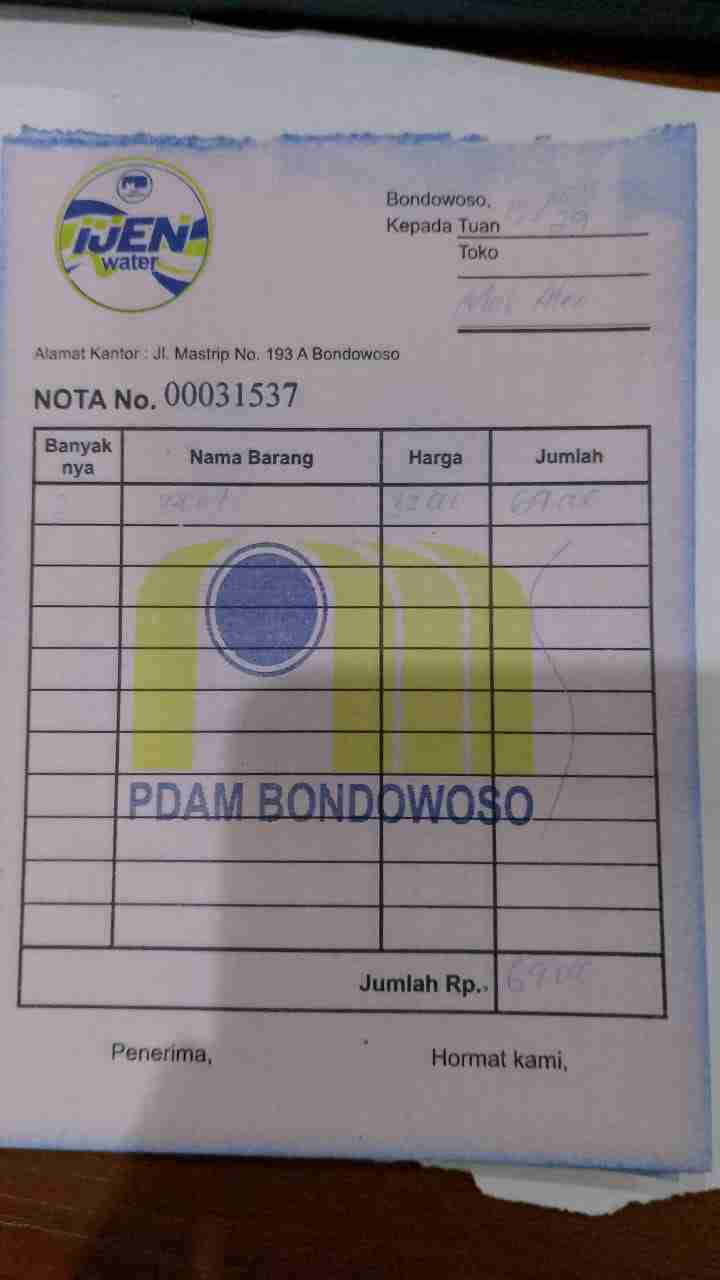 IJEN
water
Bondowoso,
Kepada Tuan
Toko
Alamat Kantor : Jl. Mastrip No. 193 A Bondowoso
NOTA No. 00031537
Banyak nya Nama Barang Harga Jumlah
PDAM BONDOWOSO
Jumlah Rp.
Penerima, Hormat kami,